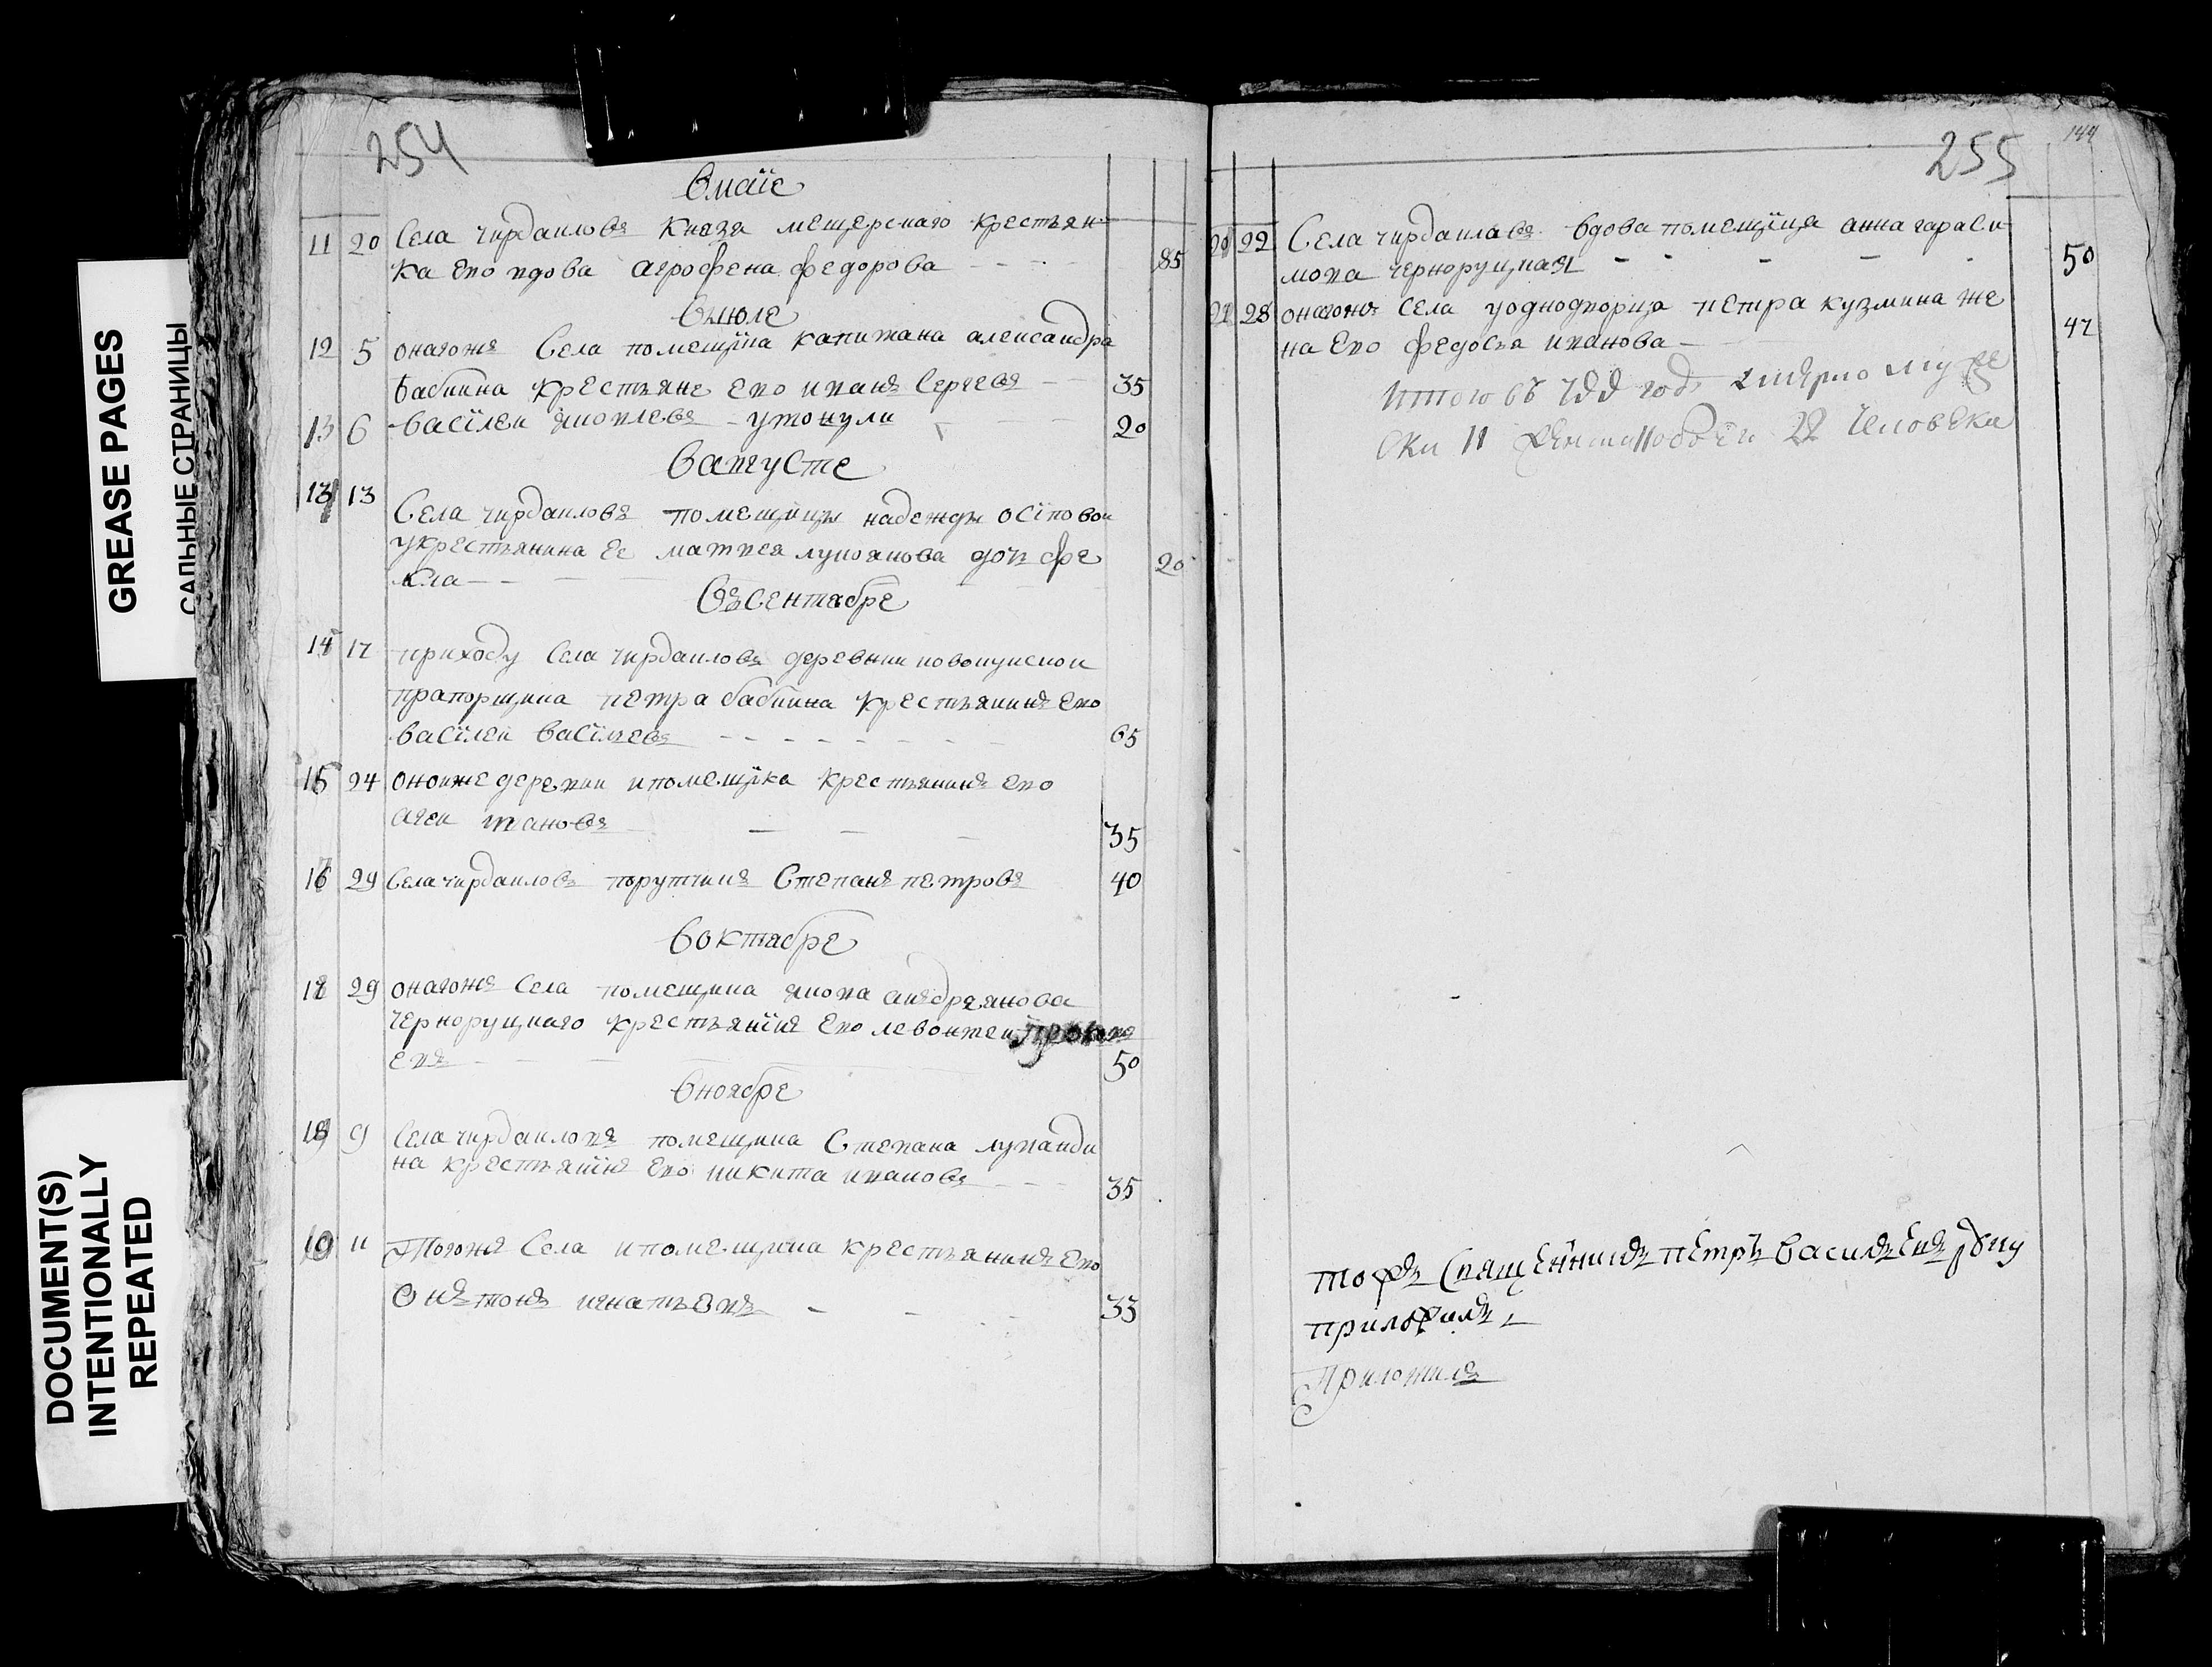 254
Вмаїе
11 20 Села чирдаиловъ Князя мещерскаго крестьян
ка ево вдова агрофена федорова 85
Виюле
12 5 онагожъ Села помещїка капитана александра
бабкина крестьянe ево иванъ Сергеевъ 35
13 6 васїлеи яковлевъ утонули 20
Вавгусте
13 13 Села чирдаиловъ помещицы надежды осїповои
укрестьянина ее матвея лукоянова дочь фе
кла 20
Въсентябре
14 17 приходу Села чирдаиловъ деревни
прапорщика петра бабкина крестьянинъ ево
васїлеи васїльевъ 65
15 24 оноижедеревни ипомещїка крестьянинъ ево
агеи ивановъ 35
16 29 Села чирдаиловъ порутчикъ Степанъ петровъ 40
воктябре
17 29 онагожъ Села помещика якова андреянова
черноруцкаго крестьянїнъ ево левонтеи
евъ 50
вноябре
18 9 Села чирдаиловъ помещика Степана лупанди
на крестьянїнъ ево никита ивановъ 35
19 11 Тогожъ Села ипомещика крестьянинъ ево
антонъ игнатьевъ 33
255
144
20 22 Села чирдаиловъ вдова помещїца анна гараси
мова черноруцкая 50
21 28 онагожъ села уоднодворца петра кузмина же
на ево федосья иванова 47
итого въ году умерло муже
ска 11 женска 11 обоего 22 человека
тожъ Священникъ петръ василъевъ руку
приложилъ
Приложилъ
GREASE PAGES
САЛЬНЫЕ СТРАНИЦЫ
DOCUMENT(S)
INTENTIONALLY
REPEATED